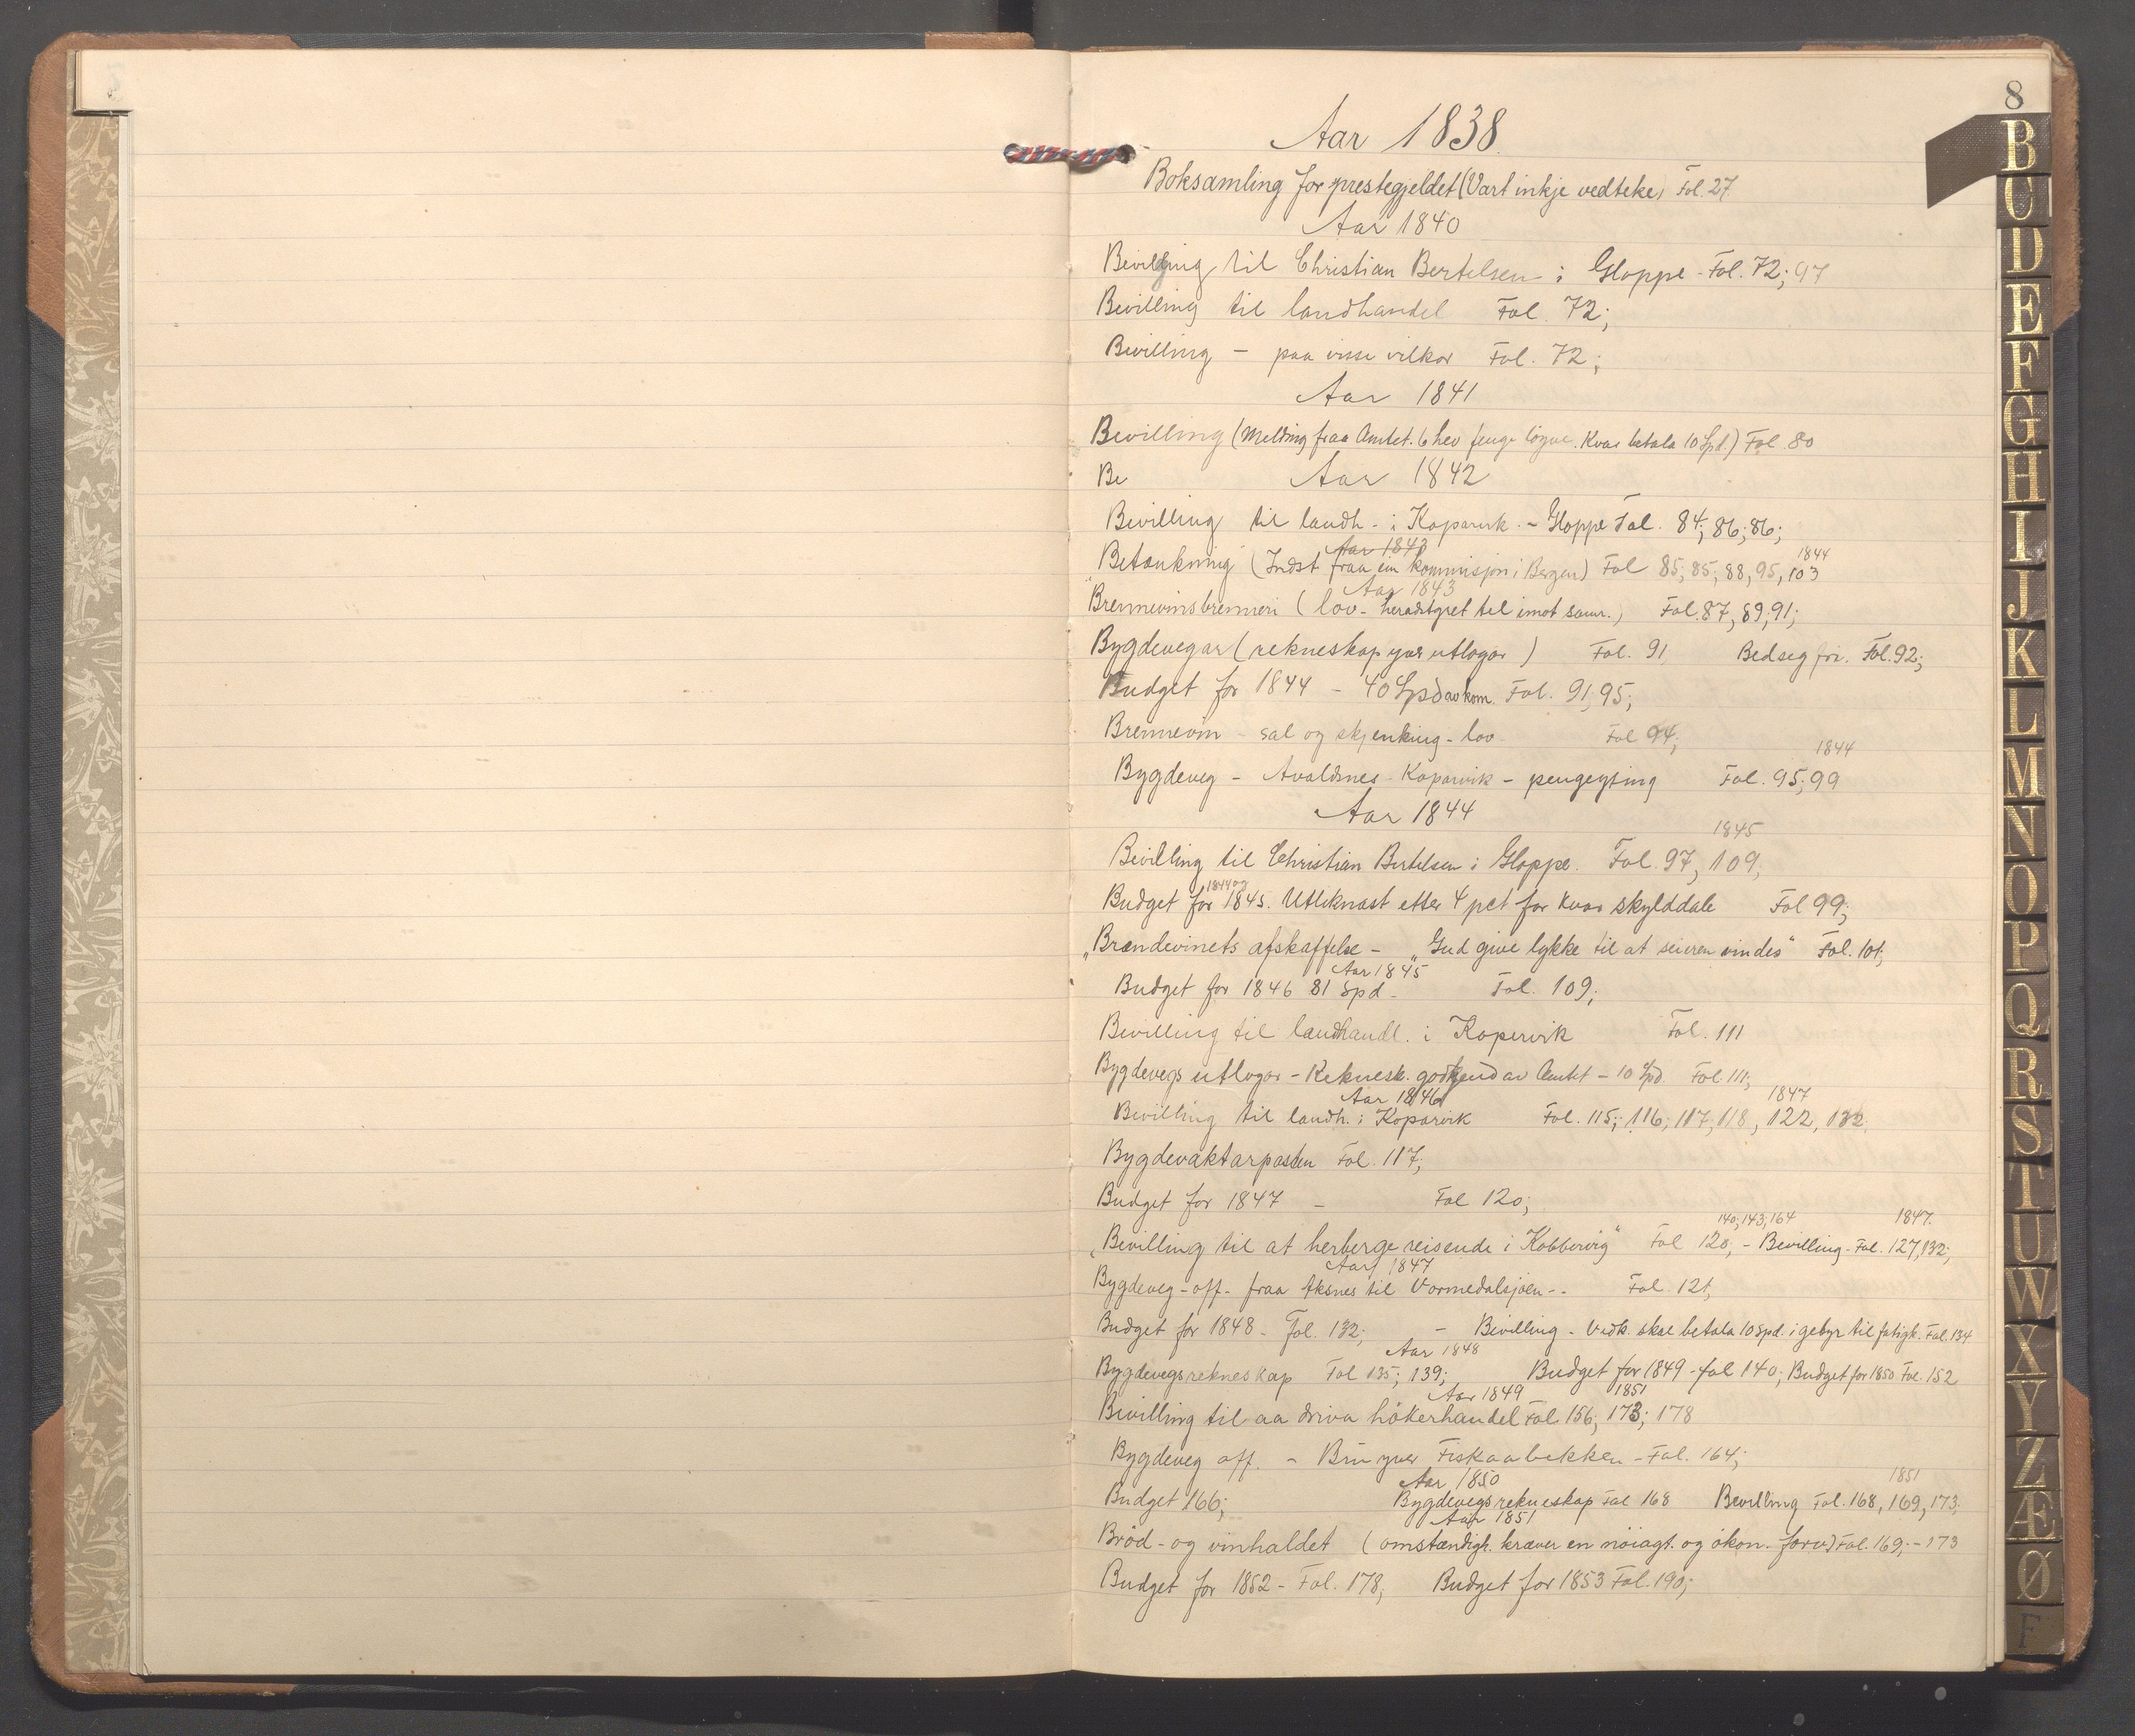 8
Aar 1838.
Boksamling for prestegjeldet (Vart inkje vedteke) Fol. 27
Aar 1840
Bevilling til Christian Bertelsen i Gloppe - Fol. 72; 97
Bevilling til landhandel Fol. 72;
Bevilling - paa visse vilkor Fol. 72;
Aar 1841
Bevilling (Melding fraa Amtet. 6 hev fenge löyve. Kvar betala 10 Spd.) Fol. 80
Be Aar 1842
Bevilling til landh. i Koparvik - Gloppe Fol. 84; 86; 86;
Aar 1843
1844
Betænkning (Indst fraa ein kommisjon i Bergen) Fol 85; 85; 88, 95, 103
Aar 1843
"Brennevinsbrenneri (lov - heradstyret til imot samr.) Fol. 87, 89; 91;
Bygdevegar (rekneskap yver utlogor) Fol. 91 Bed seg fri. Fol. 92;
Budget for 1844 - 40 Spd av kom. Fol. 91; 95;
Brennevin - sal og skjenking - lov Fol 94;
1844
Bygdeveg - Avaldsnes - Koparvik - pengeyting Fol. 95; 99
Aar 1844
1845
Bevilling til Christian Bertelsen i Gloppe. Fol. 97, 109;
1844 og
Budget for 1845. Utliknast etter 4 pct for kvar skylddale Fol 99;
"Brændevinets afskaffelse - "Gud give lykke til at seieren vindes" Fol. 101;
Aar 1845
Budget for 1846 81 Spd - Fol. 109;
Bevilling til landhandl. i Kopervik Fol. 111
Bygdevegs utlogor - Reknesk. godkjend av Amtet - 10 Spd. Fol 111;
Aar 1846
1847
Bevilling til landh. i Koparvik Fol. 115; 116; 117, 118, 122, 132;
Bygdevaktarposten Fol. 117;
Budget for 1847 - Fol 120;
140; 143; 164 1847.
"Bevilling til at herberge reisende i Kobbervig" Fol 120; - Bevilling - Fol. 127, 132;
Aar 1847
Bygdeveg - off - fraa Aksnes til Vormedalsjøen -. Fol. 121;
Budget for 1848 - fol. 132; - Bevilling - Vedk. skal betala 10 Spd. i gebyr til fatigk. Fol. 134
Aar 1848
Bygdevegsrekneskap Fol 135; 139; Budget for 1849 - fol 140; Budget for 1850 Fol. 152
Aar 1849 1851
Bevilling til aa driva hökerhandel Fol. 156; 173; 178
Bygdeveg off. - Bru yver Fiskaabekken - Fol. 164;
Aar 1850 1851
Budget 166; Bygdevegsrekneskap Fol 168 Bevilling Fol. 168, 169, 173;
Aar 1851
Bröd - og vinhaldet (omstændigh. kræver en nöiagt. og ökon. forv.) Fol. 169; - 173
Budget for 1852 - Fol. 178; Budget for 1853 Fol. 190;
B
C
D
E
F
G
H
I
J
K
L
M
N
O
P
Q
R
S
T
U
W
X
Y
Z
Æ
Ø
F